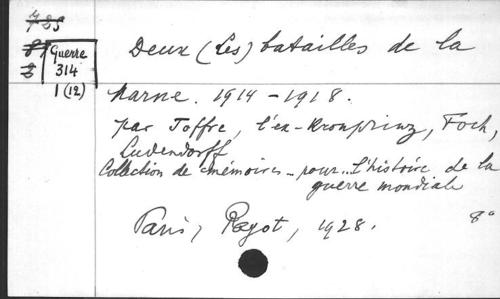 725
Guerre
314
1 (12)
Deux (Les) batailles de la
Marne. 1914-1918.
par Joffre, l'ex-Kronprinz, Foch,
Ludendorff
Collection de mémoires pour l'histoire de la
guerre mondiale
Paris, Payot, 1928. 8°